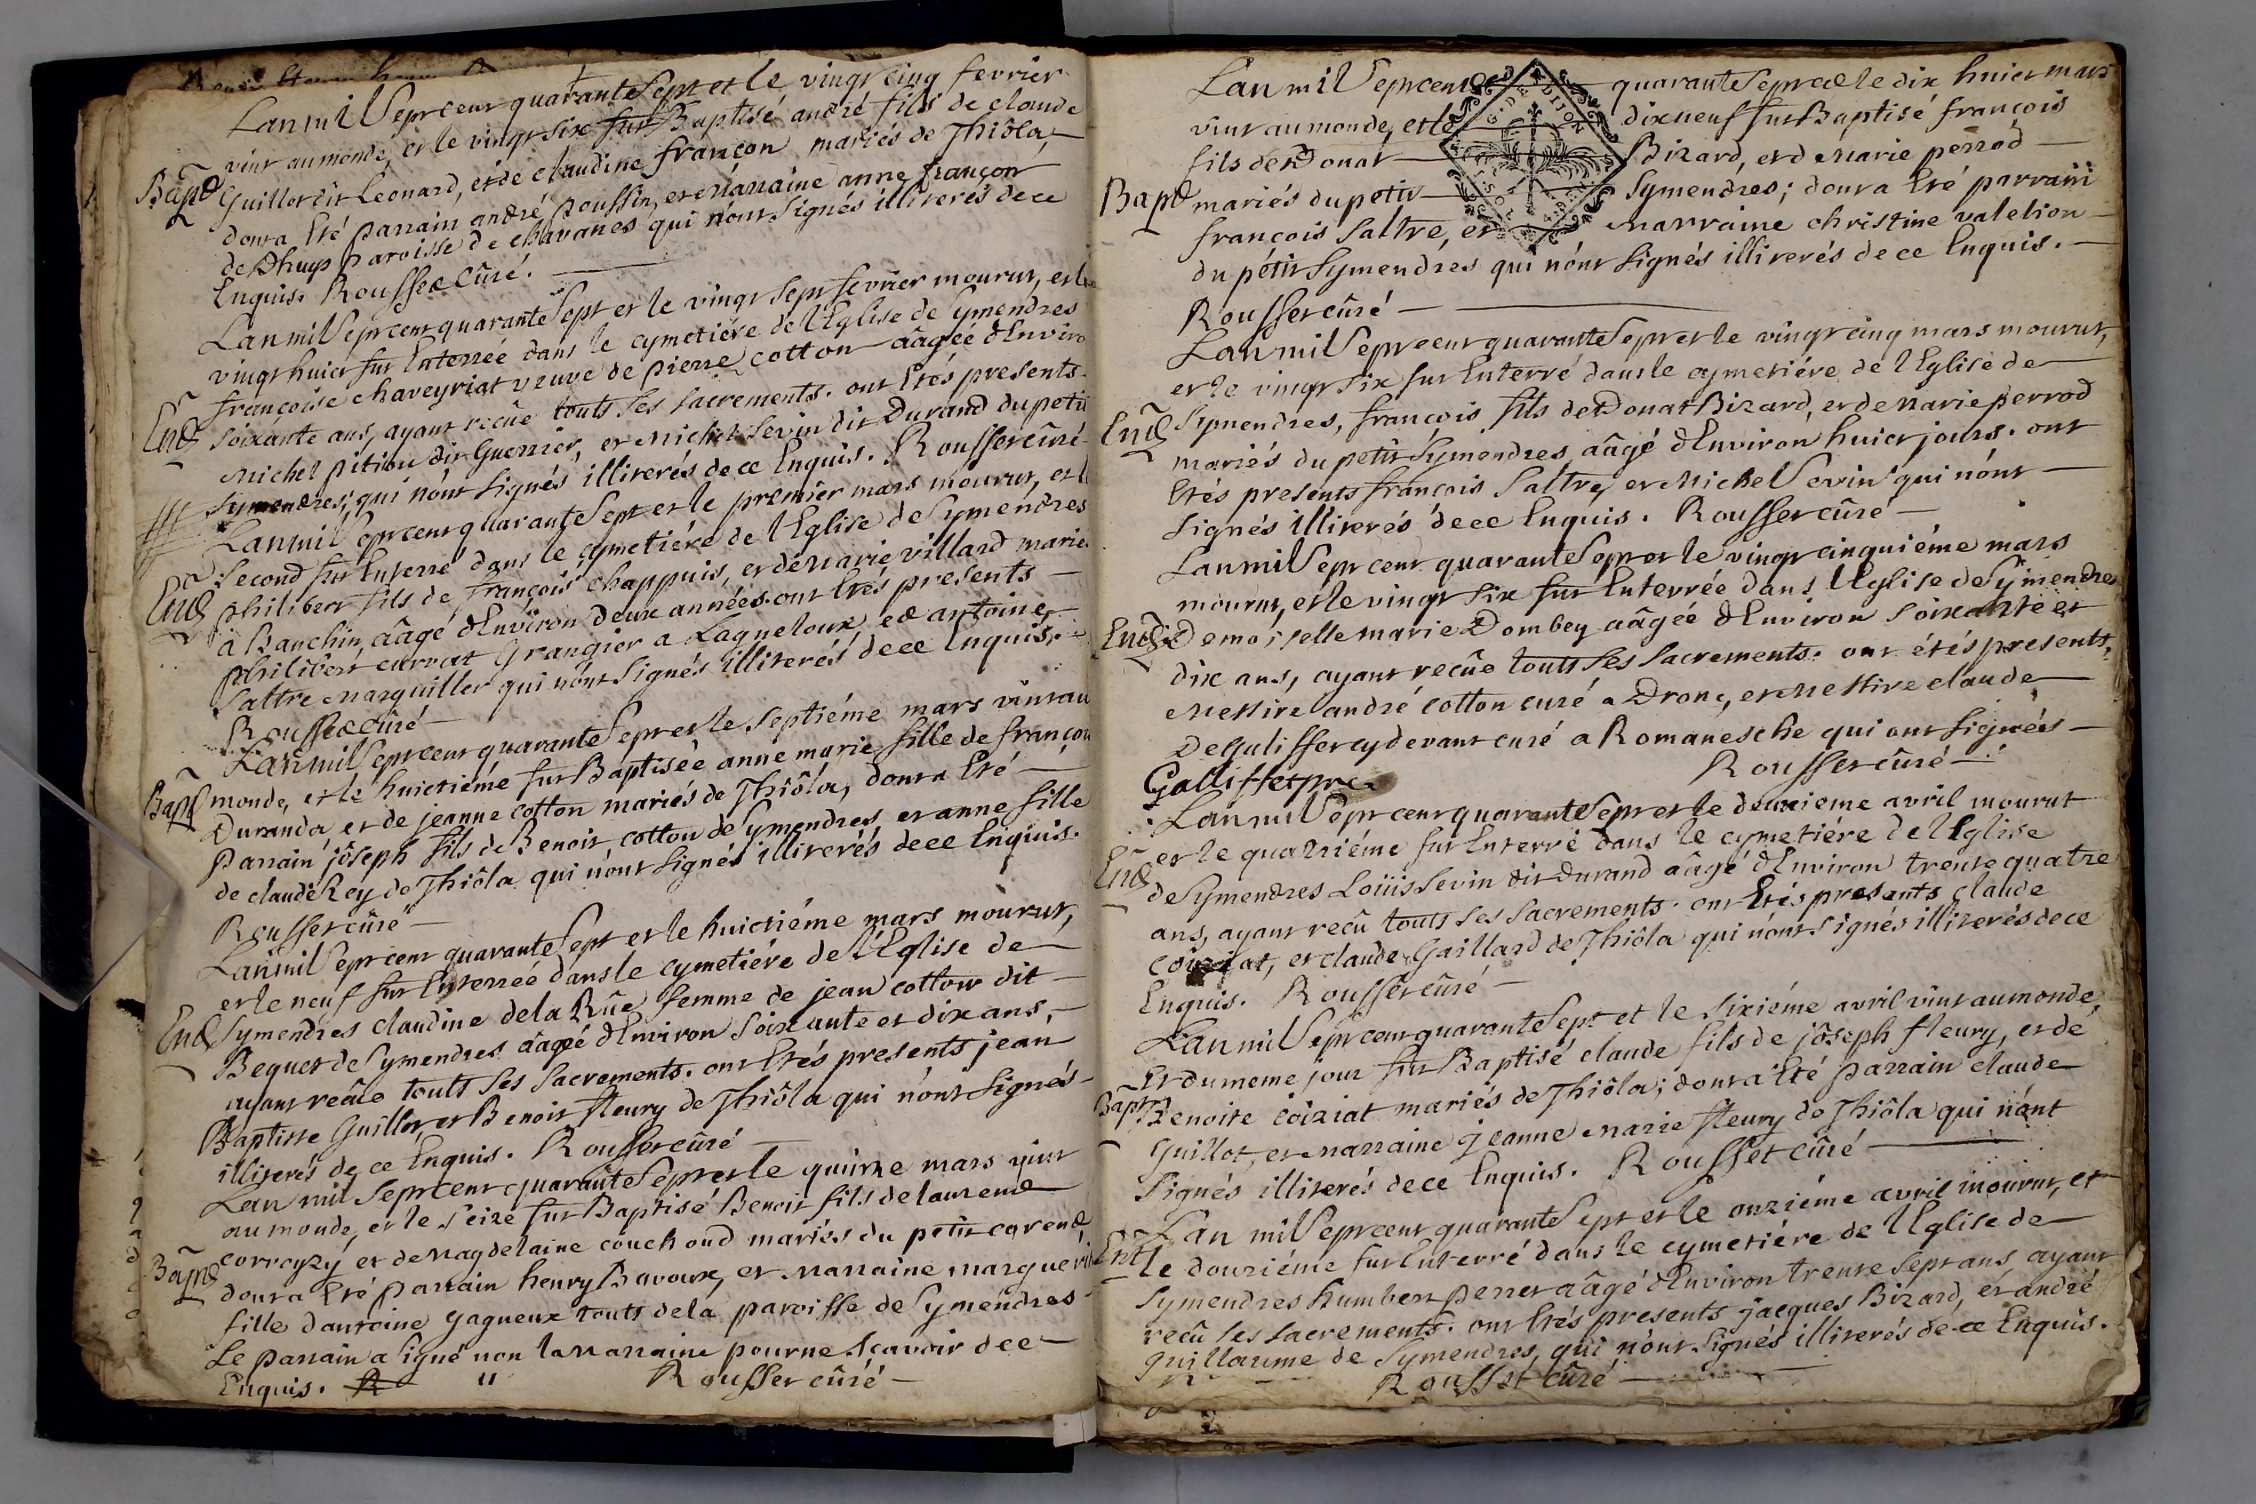 Lan mil Sept cent quarante Sept et le vingt cinq fevrier
vint au monde, et le vingt six fut Baptisé andré fils de claude
Bapt
Guillot dit Leonard, et de claudine françon mariés de Thiôla,
dont a Eté parrain andré poussin, et Marraine anne françon
paroisse de chavanes qui nónt Signés illiterés de ce
Enquis. Rousset Cûré.
Lan mil Sept cent quarante Sept et le vingt Sept fevrier mourut, et le
vingt huict fut Enterrée dans le cymetiére de l'Eglise de Symendres
françoise chaveyriat veuve de pierre cotton âagée d'Enviro
Ent
Soixante ans, ayant recûe touts Ses Sacrements. ont Etés presents
Michel pition dit Guerrier, et Michel Sevin dit Durand du petit
Symendres; qui nónt Signés illiterés de ce Enquis. Rousset cûré
Lan mil Sept cent quarante Sept et le premier mars mourut, et le
Second fut Enterré dans le cymetiére de l'Eglise de Symendres
Ent
philibert fils de françois chappuis, et de Marie villard mariés
à Banchin, âagé d'Environ Deux années. ont Etés presents
philibert curvat Grangier a Lagneloux et antoine,
Saltre Marguiller qui nónt Signés illiterés de ce Enquis.
Rousset cûré
Lan mil Sept cent quarante Sept et le Septiéme mars vint au
Bapt
monde, et le huictiéme fut Baptisée anne marie fille de françois
Duranda et de jeanne cotton mariés de Thiôla, dont a Eté
Parrain jôseph fils de Benoit cotton de Symendres et anne fille
de claude Rey de Thiôla qui nónt Signés illiterés de ce Enquis.
Rousset cûré
Lan mil Sept cent quarante Sept et le huictiéme mars mourut,
et le neuf fut Enterrée dans le cymetiére de l'Eglise de
Ent
Symendres claudine de la Rûe femme de jean cotton dit
Bequet de Symendres âagée d'Environ Soixante et dix ans,
ayant recûe touts Ses Sacrements. ont Etés presents jean
Baptiste Guillot, et Benoit fleury de Thiôla qui nónt Signés
illiterés de ce Enquis. Rousset cûré
Lan mil Sept cent quarante Sept et le quinze mars vint
au monde, et le Seize fut Baptisé Benoit fils de laurend
Bapt
correzy et de Magdelaine couchoud mariés du petit corend
dont a Eté Parrain henry Bavoux, et Marraine marguerit
fille d'antoine gagneux touts de la paroisse de Symendres
Le parrain a signé non la Marraine pour ne Scavoir de ce
Enquis. Rousset cûré
Lan mil Sept cent quarante Sept et le dix huict mars
vint au monde, et le dixneuf fut Baptisé françois
fils de Donat Bizard, et d Marie perrod
Bapt
mariés du petit Symendres; dont a Eté parrain
françois Saltre, et Marraine christine valelion
du pétit Symendres qui nónt Signés illiterés de ce Enquis.
Rousset cûré
G. DE DIJON
Lan mil Sept cent quarante Sept et le vingt cinq mars mourut,
et le vingt Six fut Enterré dans le cymetiére de l'Eglise de
Ent
Symendres, françois fils de Donat Bizard, et de Marie perrod
mariés du petit Symendres âagé d'Environ huict jours. ont
Etés presents françois Saltre, et Michel Sevin qui nónt
Signés illiterés de ce Enquis. Rousset cûré
Lan mil Sept cent quarante Sept et le vingt cinquiéme mars
mourut, et le vingt Six fut Enterrée dans l'Eglise de Symendres
Ent
Demoiselle marie Dombey aâgée d'Environ Soixante et
dix ans, ayant recûe touts Ses Sacrements. ont étés presents,
Messire andré cotton curé a Drone, et Messire claude
De Galissset cy devant curé a Romanesche qui ont Signés
Rousset cûré
Galliffet
Lan mil Sept cent quarante Sept et le deuxieme avril mourut
et le quatriéme fut Enterré dans le cymetiére de l'Eglise
Ent
de Symendres Loüis Sevin dit Durand aâgé d'Environ trente quatre
ans, ayant recû touts Ses Sacrements. ont Etés presents claude
Coiziat, et claude Gaillard de Thiôla qui nónt Signés illiterés de ce
Enquis. Rousset cûré
Lan mil Sept cent quarante Sept et le Sixiéme avril vint au monde
Et du meme jour fut Baptisé claude fils de jôseph fleury, et de
Bapt
Benoite coiziat mariés de Thiôla; dont a Eté Parrain claude
Guillot, et marraine jeanne Marie fleury de Thiôla qui nónt
Signés illiterés de ce Enquis. Rousset cûré
Lan mil Sept cent quarante Sept et le onziéme avril mourut, et
Ent
Le douziéme fut Enterré dans le cymetiére de l'Eglise de
Symendres humbert perret aâgé d'Environ trente Sept ans, ayant
recû Ses Sacrements. ont Etés presents jacques Bizard, et andré
guillaume de Symendres, qui nónt Signés illiterés de ce Enquis.
Rousset cûré